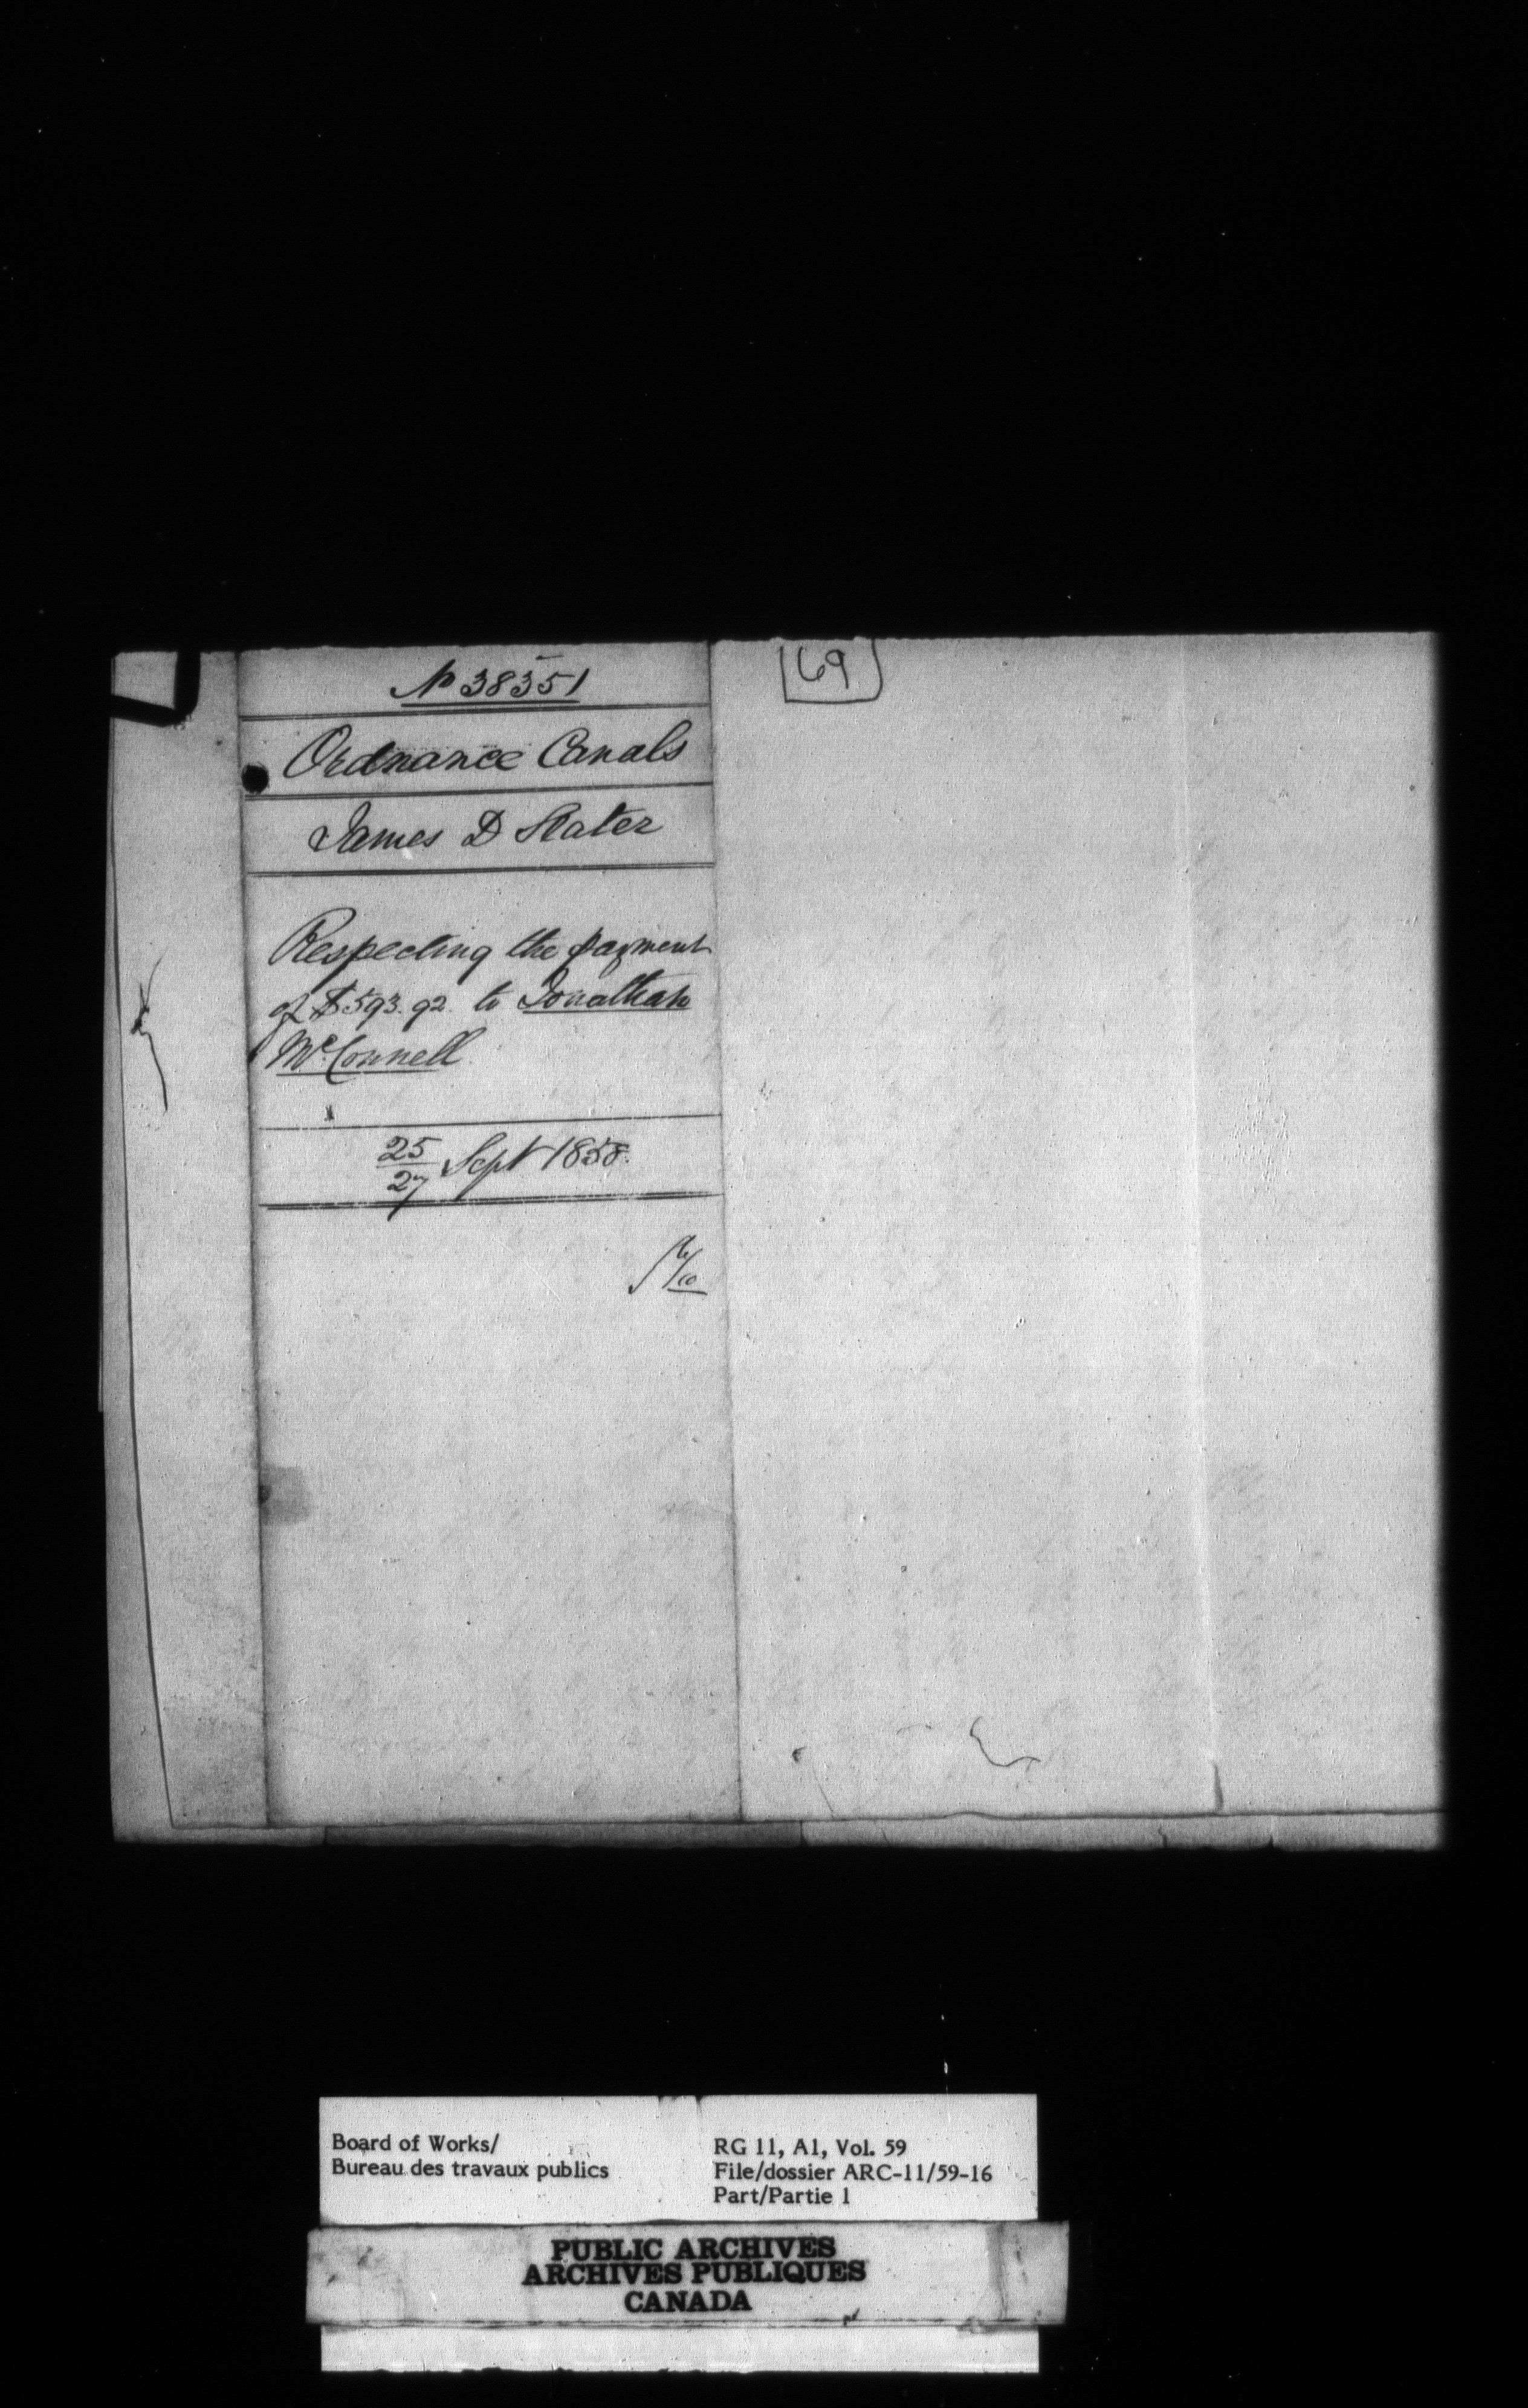 No 38351
69
Ordnance Canals
James D Slater
Respecting the payment
of $593.92 to Jonathan
McConnell
25/27 Sept 1858.
Board of Works/
Bureau des travaux publics
RG 11, A1, Vol. 59
File/dossier ARC-11/59-16
Part/Partie 1
PUBLIC ARCHIVES
ARCHIVES PUBLIQUES
CANADA